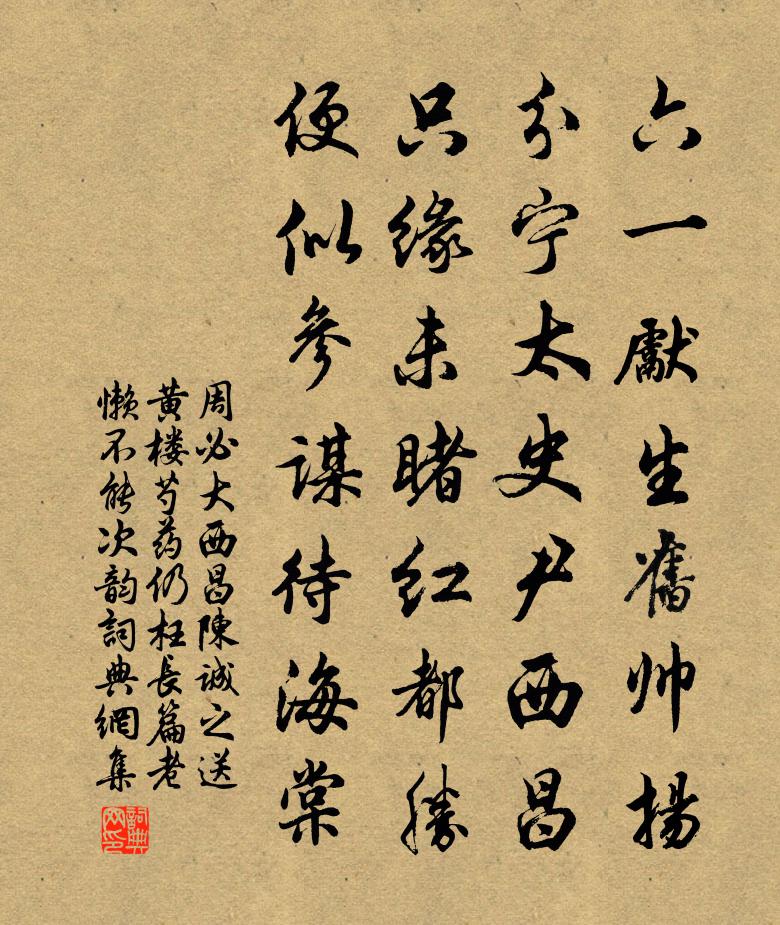 六一獻生舊帅揚
分宁太史尹西昌
只缘未睹红都勝
便似参谋待海棠
周必大西昌陳诚之送
黄楼芍药仍枉長篇老
懒不能次韵詞典網集
詞典网印